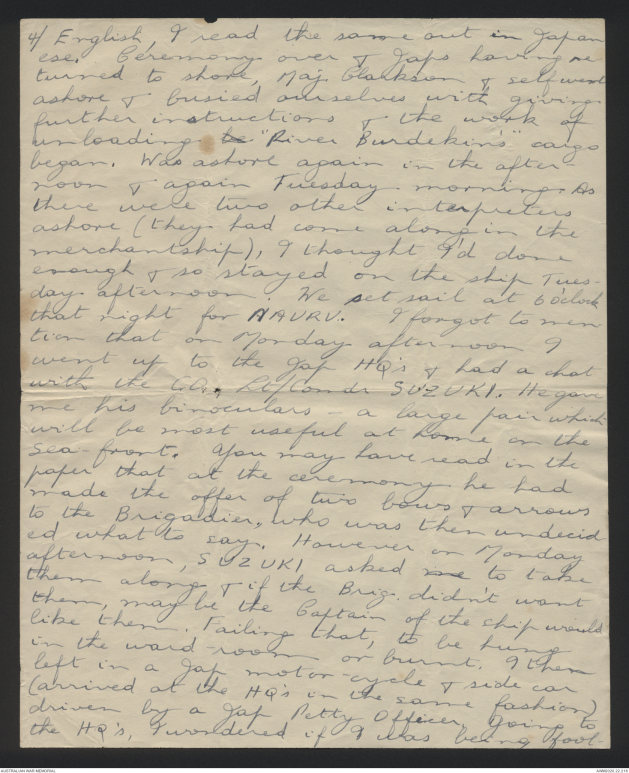 4/ English, I read the same out in Japan
ese. Ceremony over & Japs having re
turned to shore, Maj. Clarkson & self went
ashore & busied ourselves with giving
further instructions & the work of
unloading "River Burdekin's" cargo
began. Was ashore again in the after
noon & again Tuesday morning. As
there were two other interpreters
ashore (they had come along in the
merchantship), I thought I'd done
enough & so stayed on the ship Tues-
day afternoon. We set sail at 6 o'clock
that night for NAURU. I forgot to men
tion that on Monday afternoon I
went up to the Jap HQ's & had a chat
with the CO., Lt/Comdr SUZUKI. He gave
me his binoculars - a large pair which
will be most useful at home on the
sea-front. You may have read in the
paper that at the ceremony he had
made the offer of two bows & arrows
to the Brigadier, who was then undecid
ed what to say. However on Monday
afternoon, SUZUKI asked me to take
them along & if the Brig. didn't want
them, may be the Captain of the ship would
like them. Failing that, to be hung
in the ward-room or burnt. I then
left in a Jap motor-cycle & side car
(arrived at the HQ's in the same fashion)
driven by a Jap Petty Officer. Going to
the HQ's, I wondered if I was being fool-
AUSTRALIAN WAR MEMORIAL